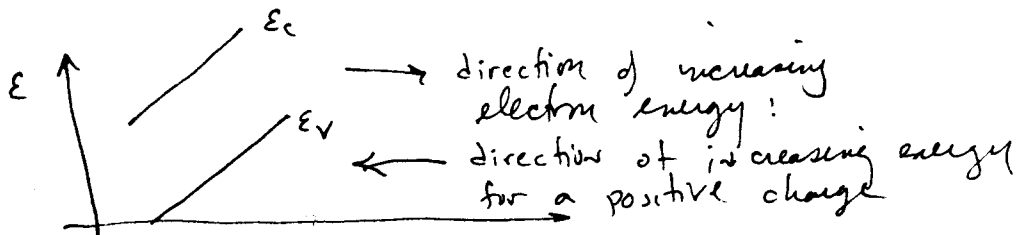 εc
ε
→ direction of increasing
electron energy!
εv
← direction of increasing energy
for a positive charge